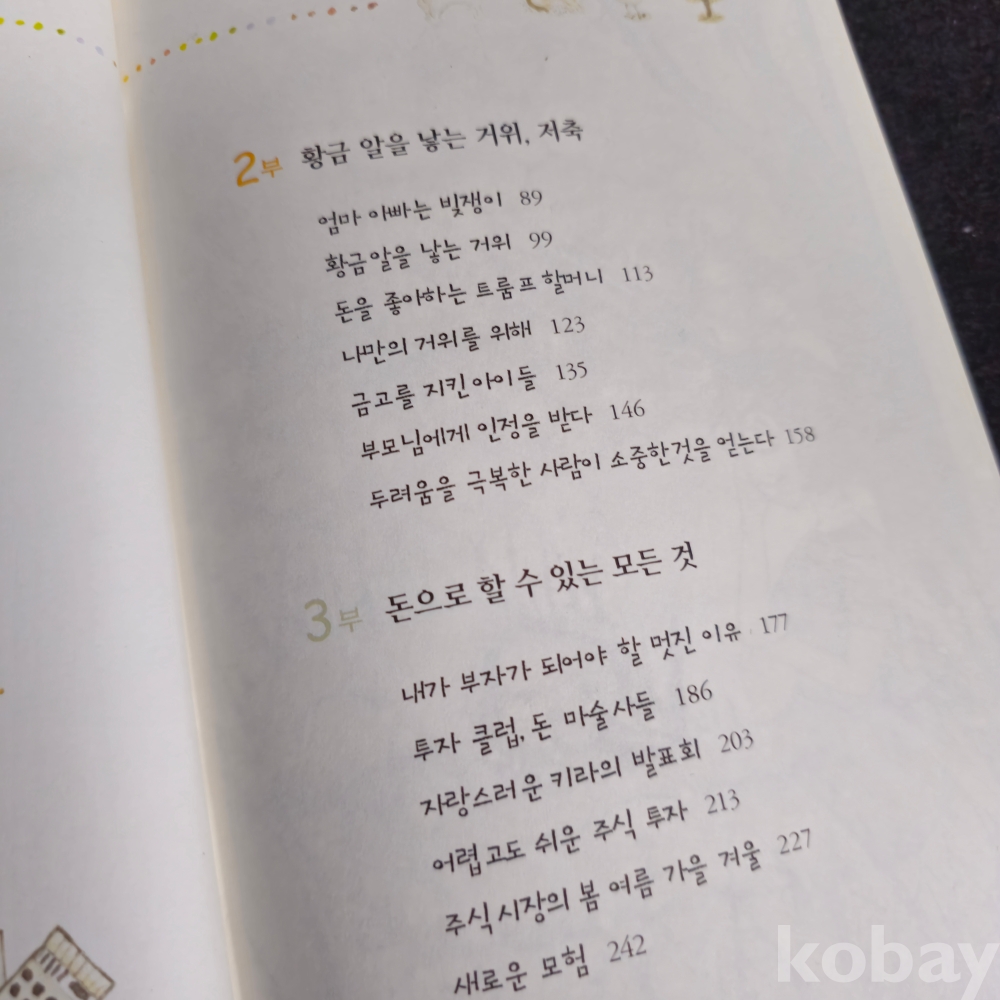 2부 황금 알을 낳는 거위, 저축
엄마 아빠는 빚쟁이 89
황금알을 낳는 거위 99
돈을 좋아하는 트룸프 할머니 113
나만의 거위를 위해 123
금고를 지킨 아이들 135
부모님에게 인정을 받다 146
두려움을 극복한 사람이 소중한것을 얻는다 158
3부 돈으로 할 수 있는 모든 것
내가 부자가 되어야 할 멋진 이유 177
투자 클럽, 돈 마술사들 186
자랑스러운 키라의 발표회 203
어렵고도 쉬운 주식 투자 213
주식시장의 봄 여름 가을 겨울 227
새로운 모험 242
kobay